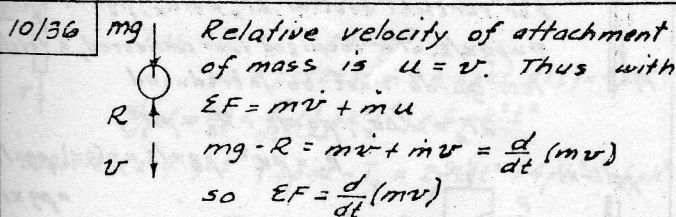 10/36
mg
R
v
Relative velocity of attachment
of mass is u = v. Thus with
ΣF = mv̇ + ṁu
mg - R = mv̇ + ṁv = d/dt (mv)
so ΣF = d/dt (mv)